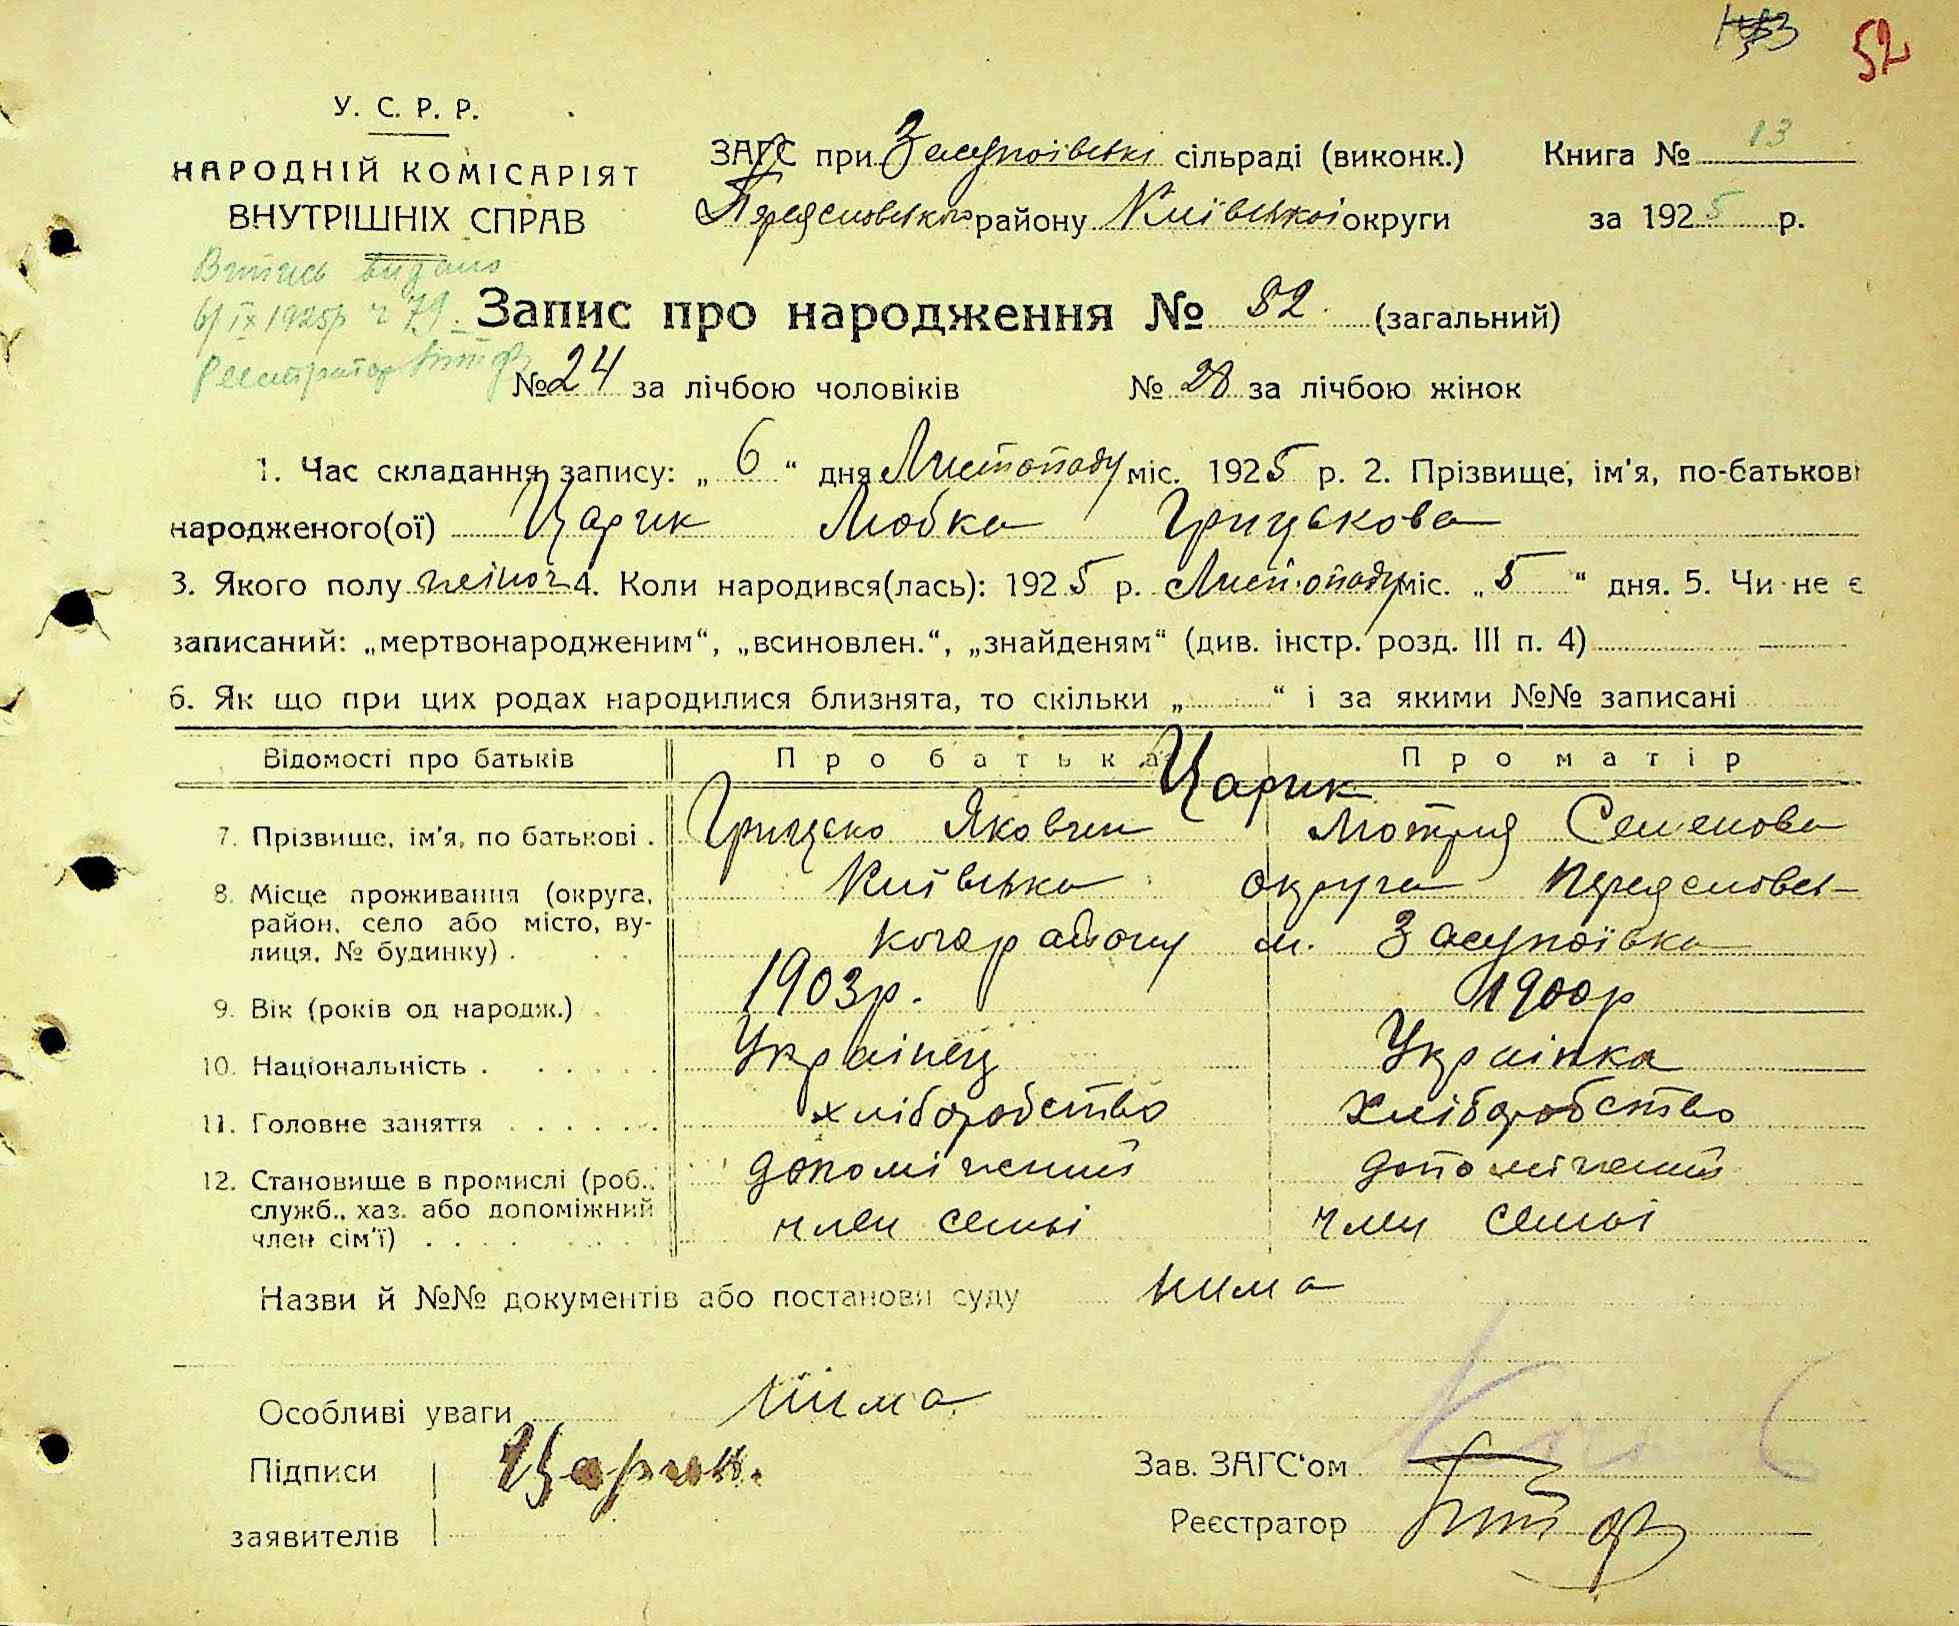 52
У. С. Р. Р.
НАРОДНІЙ КОМІСАРІЯТ
ВНУТРІШНІХ СПРАВ
ЗАГС при Засупоївські сільраді (виконк.) Книга № 13
Переяславського району Київської округи за 1925 р.
Витись видано
6/IX 1925р ч 79
Реєстратор
Запис про народження № 52 (загальний)
№ 24 за лічбою чоловіків № 28 за лічбою жінок
1. Час складання запису: „ 6 “ дня Листопаду міс. 1925 р. 2. Прізвище, ім'я, по-батькові
народженого(ої) Царик Любка Грицькова
3. Якого полу жіноч 4. Коли народився(лась): 1925 р. Листопаду міс. „ 5 “ дня. 5. Чи не є
записаний: „мертвонародженим“, „всиновлен.“, „знайденям“ (див. інстр. розд. III п. 4)
6. Як що при цих родах народилися близнята, то скільки „ “ і за якими №№ записані
Відомості про батьків Про батька Про матір
Царик
7. Прізвище, ім'я, по батькові . Грицько Якович Мотря Семенова
8. Місце проживання (округа, Київська округа Переяславсь-
район, село або місто, ву- кого району м. Засупоївка
лиця, № будинку) .
9. Вік (років од народж.) . 1903р. 1900р
10. Національність . Українец Українка
11. Головне заняття хліборобство хліборобство
12. Становище в промислі (роб., допоміжний допоміжний
служб., хаз. або допоміжний член семьі член семьі
член сім'ї)
Назви й №№ документів або постанови суду нима
Особливі уваги нима
Підписи Царик.
заявителів
Зав. ЗАГС'ом
Реєстратор